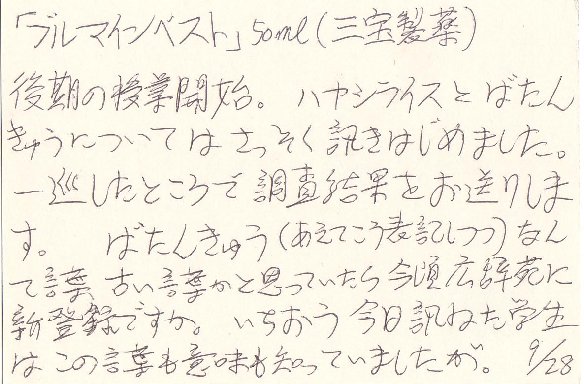 「ブルマインベスト」50ml(三宝製薬)
後期の授業開始。 ハヤシライスとばたん
きゅうについてはさっそく訊きはじめました。
一巡したところで調査結果をお送りしま
す。 ばたんきゅう(あえてこう表記しつつ)なん
て言葉、古い言葉かと思っていたら今頃広辞苑に
新登録ですか。 いちおう今日訊ねた学生
はこの言葉も意味も知っていましたが。 9/28